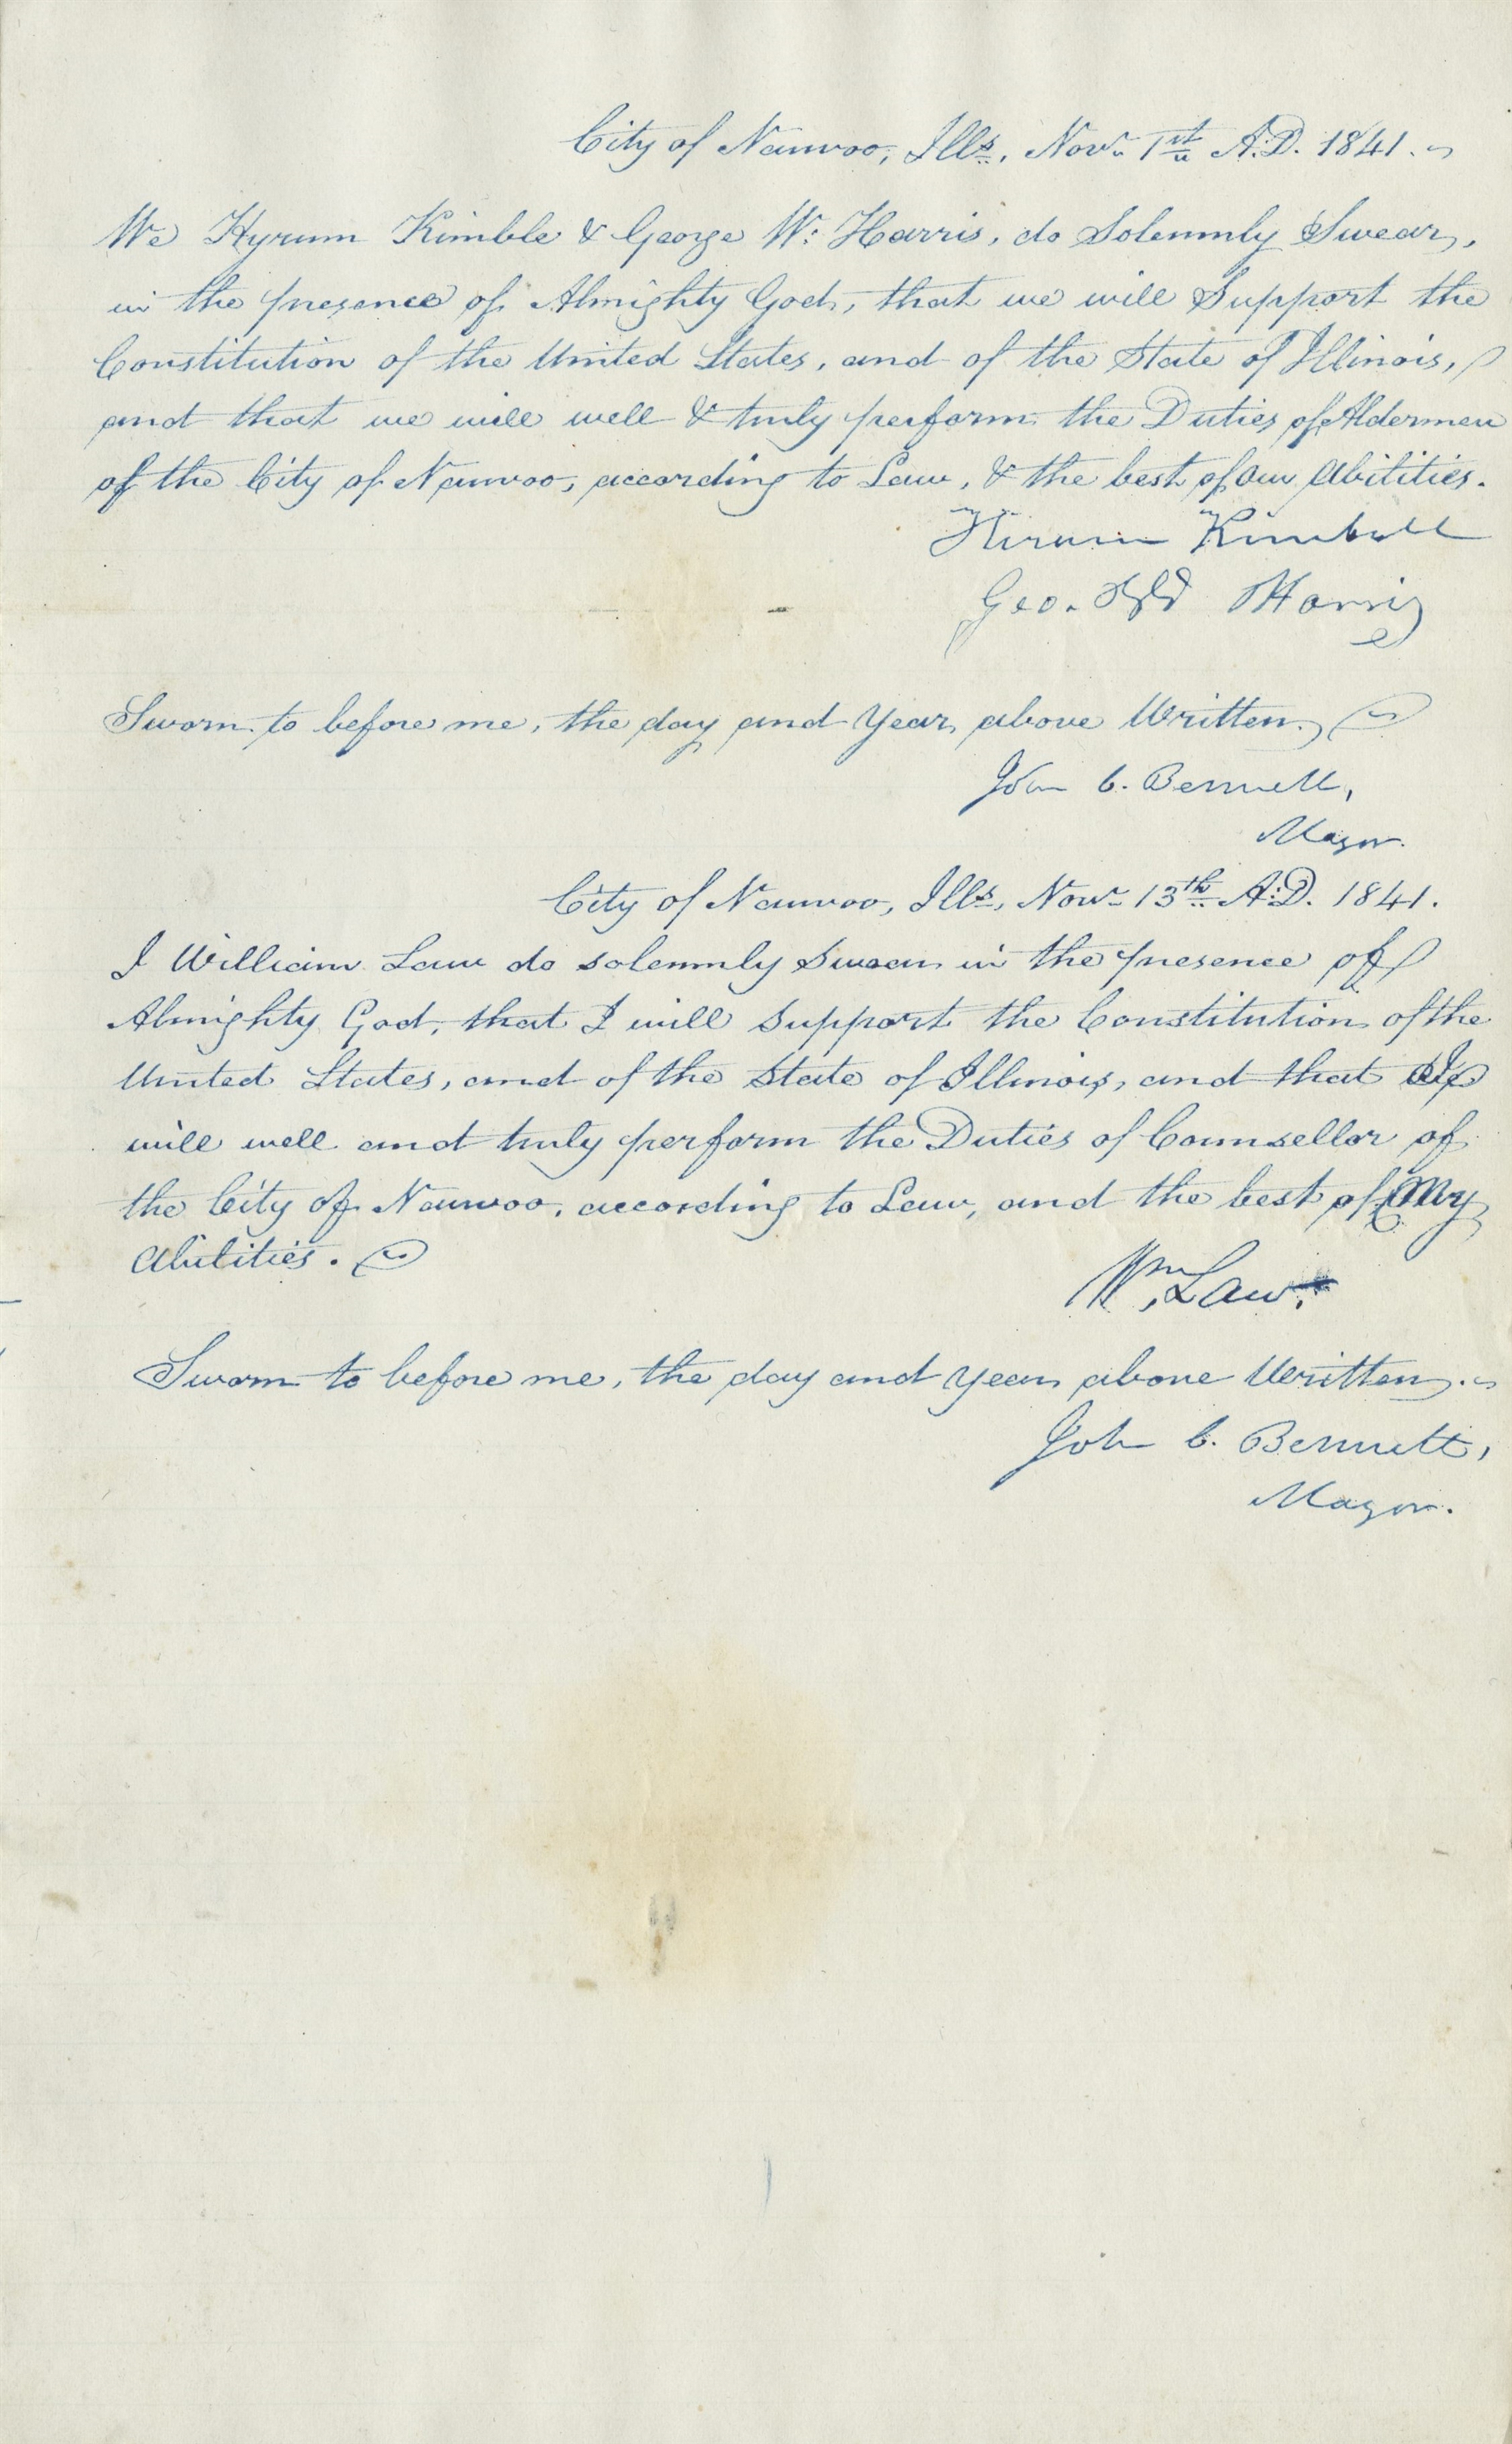 City of Nauvoo, Ills. Nov. 1st A.D. 1841.
We Hyrum Kimble & George W. Harris, do Solemnly Swear,
in the presence of Almighty God, that we will Support the
Constitution of the United States, and of the State of Illinois,
and that we will well & truly perform the Duties of Aldermen
of the City of Nauvoo, according to Law, & the best of our Abilities.
Hiram Kimball
Geo. W Harris
Sworn to before me, the day and Year above Written.
John C. Bennett,
Mayor.
City of Nauvoo, Ills, Nov. 13th A.D. 1841.
I William Law do solemnly swear in the presence of
Almighty God, that I will support the Constitution of the
United States, and of the State of Illinois, and that I
will well and truly perform the Duties of Counsellor of
the City of Nauvoo, according to Law, and the best of My
Abilities.
Wm Law.
Sworn to before me, the day and year above Written.
John C. Bennett,
Mayor.